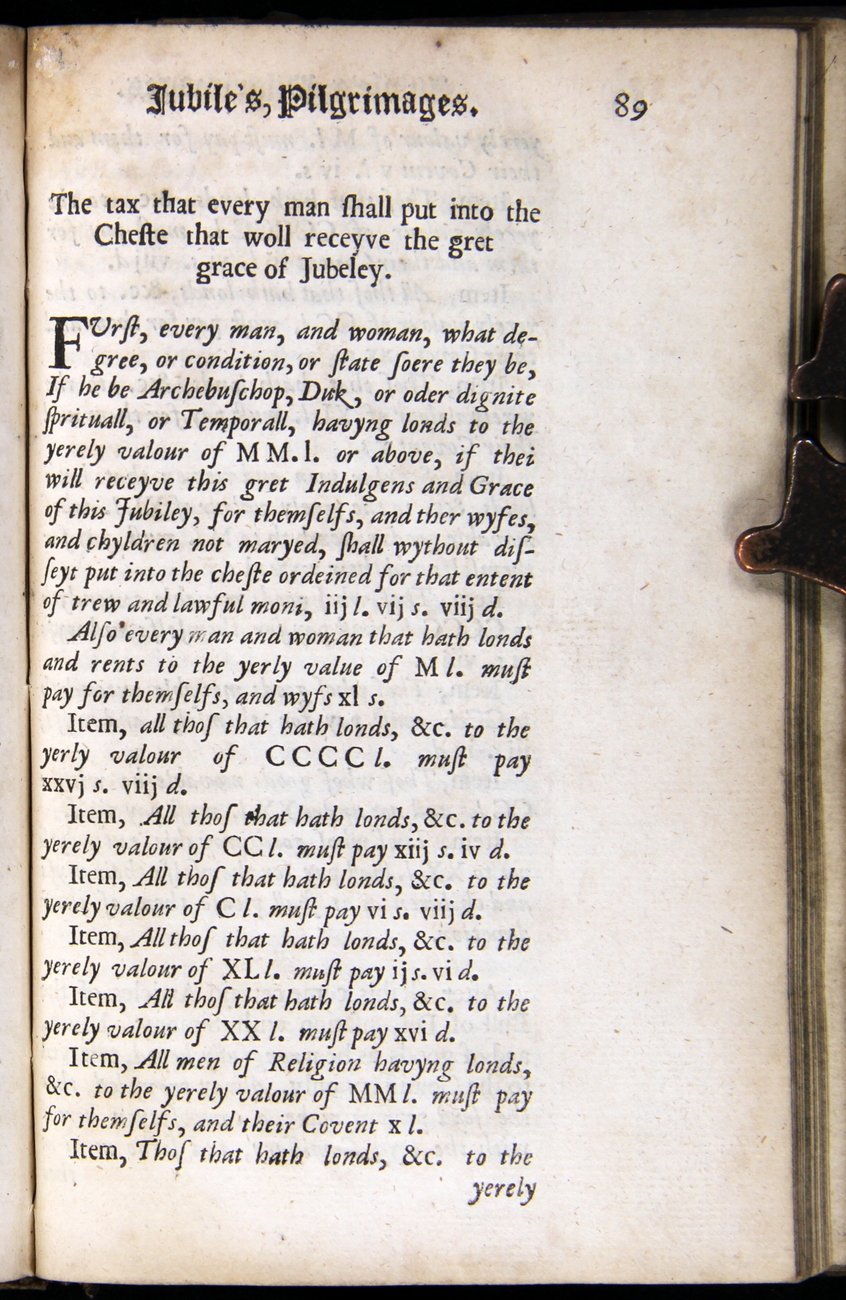 Jubile's, Pilgrimages. 89
The tax that every man ſhall put into the
Cheſte that woll receyve the gret
grace of Jubeley.
FUrſt, every man, and woman, what de-
gree, or condition, or ſtate ſoere they be,
If he be Archebuſchop, Duk, or oder dignite
ſprituall, or Temporall, havyng londs to the
yerely valour of M M. l. or above, if thei
will receyve this gret Indulgens and Grace
of this Jubiley, for themſelfs, and ther wyfes,
and chyldren not maryed, ſhall wythout diſ-
ſeyt put into the cheſte ordeined for that entent
of trew and lawful moni, iij l. vij s. viij d.
Alſo every man and woman that hath londs
and rents to the yerly value of M l. muſt
pay for themſelfs, and wyfs xl s.
Item, all thoſ that hath londs, &c. to the
yerly valour of C C C C l. muſt pay
xxvj s. viij d.
Item, All thoſ that hath londs, &c. to the
yerely valour of CC l. muſt pay xiij s. iv d.
Item, All thoſ that hath londs, &c. to the
yerely valour of C l. muſt pay vi s. viij d.
Item, All thoſ that hath londs, &c. to the
yerely valour of XL l. muſt pay ij s. vi d.
Item, All thoſ that hath londs, &c. to the
yerely valour of XX l. muſt pay xvi d.
Item, All men of Religion havyng londs,
&c. to the yerely valour of MM l. muſt pay
for themſelfs, and their Covent x l.
Item, Thoſ that hath londs, &c. to the
yerely